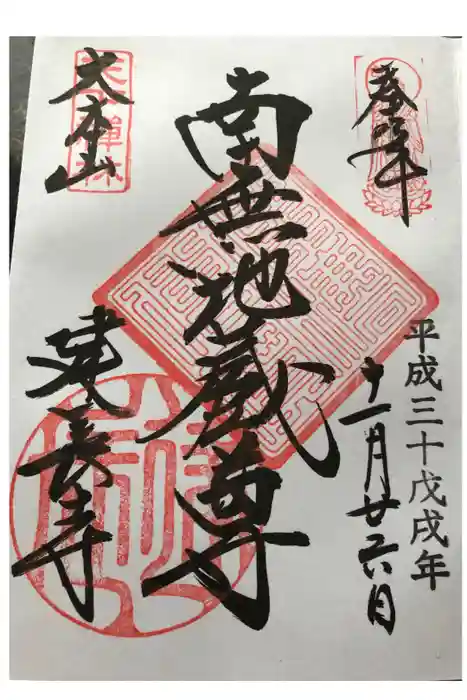 奉拝
平成三十戊戌年
十一月廿六日
南無地蔵尊
大本山
建長寺